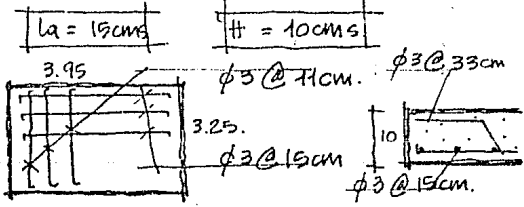 La = 15cms
H = 10cms
3.95
ϕ3 @ 11cm.
ϕ3 @ 33cm
3.25.
10
ϕ3 @ 15cm
ϕ3 @ 15cm.